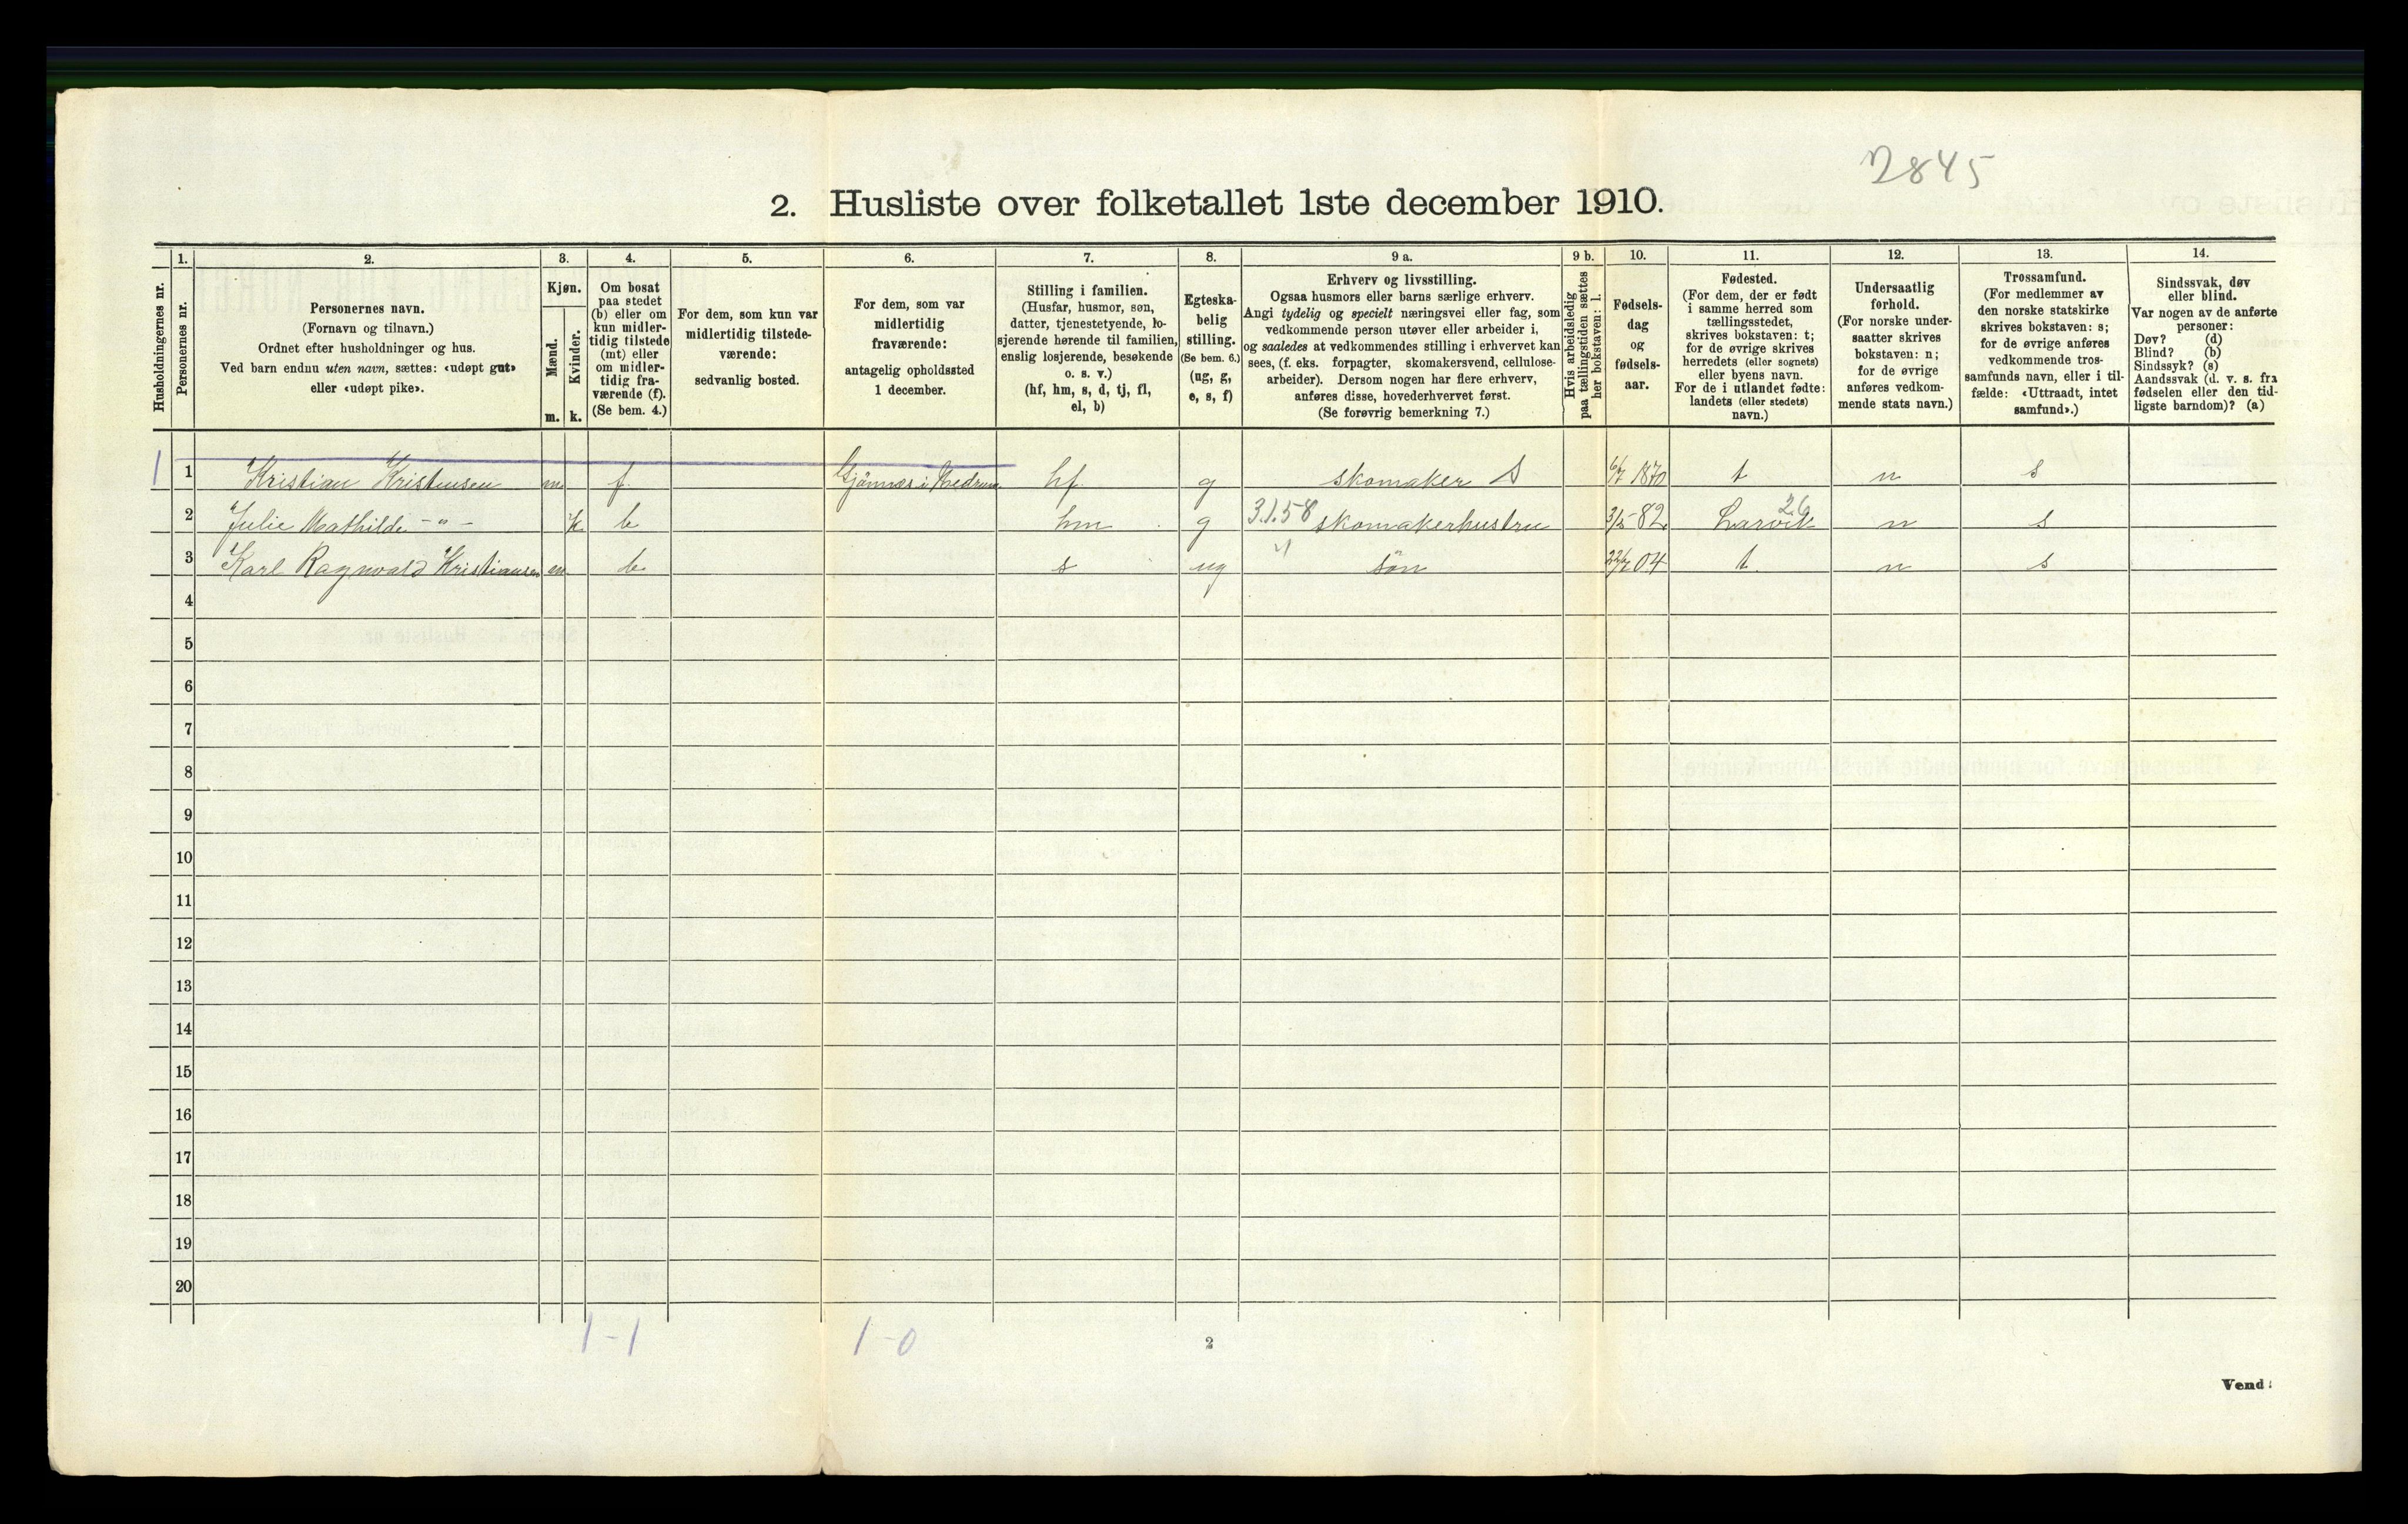 2845
2. Husliste over folketallet 1ste december 1910.
Husholdningernes nr.
1.
Personernes nr.
2.
Personernes navn.
(Fornavn og tilnavn.)
Ordnet efter husholdninger og hus.
Ved barn endnu uten navn, sættes: «udøpt gut»
eller «udøpt pike».
3.
Kjøn.
Mænd.
m.
Kvinder.
k.
4.
Om bosat
paa stedet
(b) eller om
kun midler-
tidig tilstede
(mt) eller
om midler-
tidig fra-
værende (f).
(Se bem. 4.)
5.
For dem, som kun var
midlertidig tilstede-
værende:
sedvanlig bosted.
6.
For dem, som var
midlertidig
fraværende:
antagelig opholdssted
1 december.
7.
Stilling i familien.
(Husfar, husmor, søn,
datter, tjenestetyende, lo-
sjerende hørende til familien,
enslig losjerende, besøkende
o. s. v.)
(hf, hm, s, d, tj, fl,
el, b)
8.
Egteska-
belig
stilling.
(Se bem. 6.)
(ug, g,
e, s, f)
9 a.
Erhverv og livsstilling.
Ogsaa husmors eller barns særlige erhverv.
Angi tydelig og specielt næringsvei eller fag, som
vedkommende person utøver eller arbeider i,
og saaledes at vedkommendes stilling i erhvervet kan
sees, (f. eks. forpagter, skomakersvend, cellulose-
arbeider). Dersom nogen har flere erhverv,
anføres disse, hovederhvervet først.
(Se forøvrig bemerkning 7.)
9 b.
Hvis arbeidsledig
paa tællingstiden sættes
her bokstaven: l.
10.
Fødsels-
dag
og
fødsels-
aar.
11.
Fødested.
(For dem, der er født
i samme herred som
tællingsstedet,
skrives bokstaven: t;
for de øvrige skrives
herredets (eller sognets)
eller byens navn.
For de i utlandet fødte:
landets (eller stedets)
navn.)
12.
Undersaatlig
forhold.
(For norske under-
saatter skrives
bokstaven: n;
for de øvrige
anføres vedkom-
mende stats navn.)
13.
Trossamfund.
(For medlemmer av
den norske statskirke
skrives bokstaven: s;
for de øvrige anføres
vedkommende tros-
samfunds navn, eller i til-
fælde: «Uttraadt, intet
samfund».)
14.
Sindssvak, døv
eller blind.
Var nogen av de anførte
personer:
Døv? (d)
Blind? (b)
Sindssyk? (s)
Aandssvak (d. v. s. fra
fødselen eller den tid-
ligste barndom)? (a)
1 1 Kristian Kristensen m f Gjönnes i Hedrum hf g skomaker S 6/7 1870 t n s
2 Julie Mathilde -"- k b hm g 3.1.58 skomakerhustru 3/5-82 Larvik 26 n s
3 Karl Ragnvald Kristiansen m b s ug " sön 04 t n s
4
5
6
7
8
9
10
11
12
13
14
15
16
17
18
19
20
1-1 1-0
2
Vend!